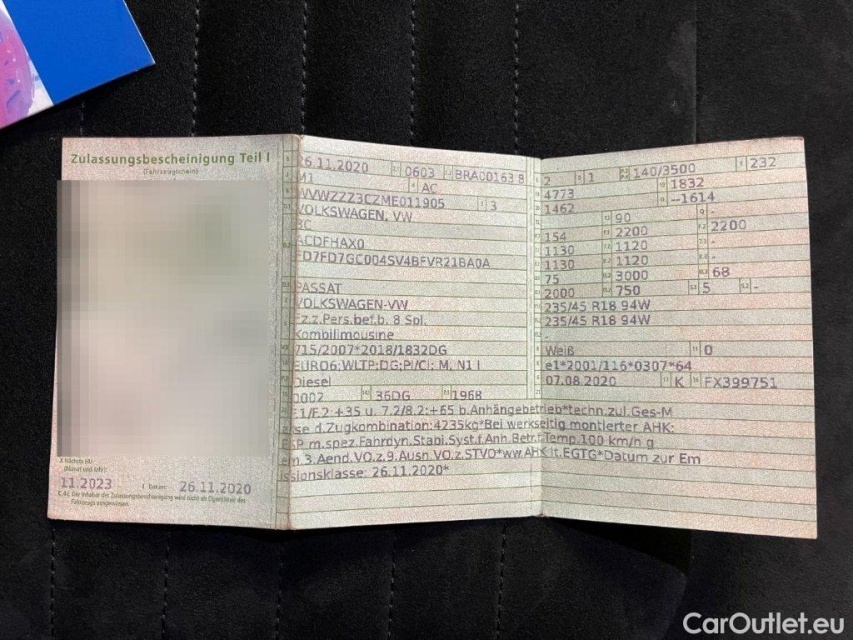 Zulassungsbescheinigung Teil I
(Fahrzeugschein)
11.2023
26.11.2020
26.11.2020 0603 BRA00163 8
M1 AC
WVWZZZ3CZME011905 3
VOLKSWAGEN, VW
3C
ACDFHAX0
FD7FD7GC004SV4BFVR21BA0A
PASSAT
VOLKSWAGEN-VW
Fz.z.Pers.bef.b. 8 Spl.
Kombilimousine
715/2007*2018/1832DG
EURO6;WLTP;DG;PI/CI; M, N1 I
Diesel
0002 36DG 1968
2 1 140/3500 232
4773 1832
1462 --1614
90 -
154 2200 2200
1130 1120 -
1130 1120 -
75 3000 68
2000 750 5 -
235/45 R18 94W
235/45 R18 94W
-
Weiß 0
e1*2001/116*0307*64
07.08.2020 K FX399751
F.1/F.2:+35 u. 7.2/8.2:+65 b.Anhängebetrieb*techn.zul.Ges-M
sse d.Zugkombination:4235kg*Bei werkseitig montierter AHK:
ESP m.spez.Fahrdyn.Stabi.Syst.f.Anh.Betr.f.Temp.100 km/h g
em.3.Aend.VO.z.9.Ausn.VO.z.STVO*ww.AHK lt.EGTG*Datum zur Em
issionsklasse: 26.11.2020*
CarOutlet.eu